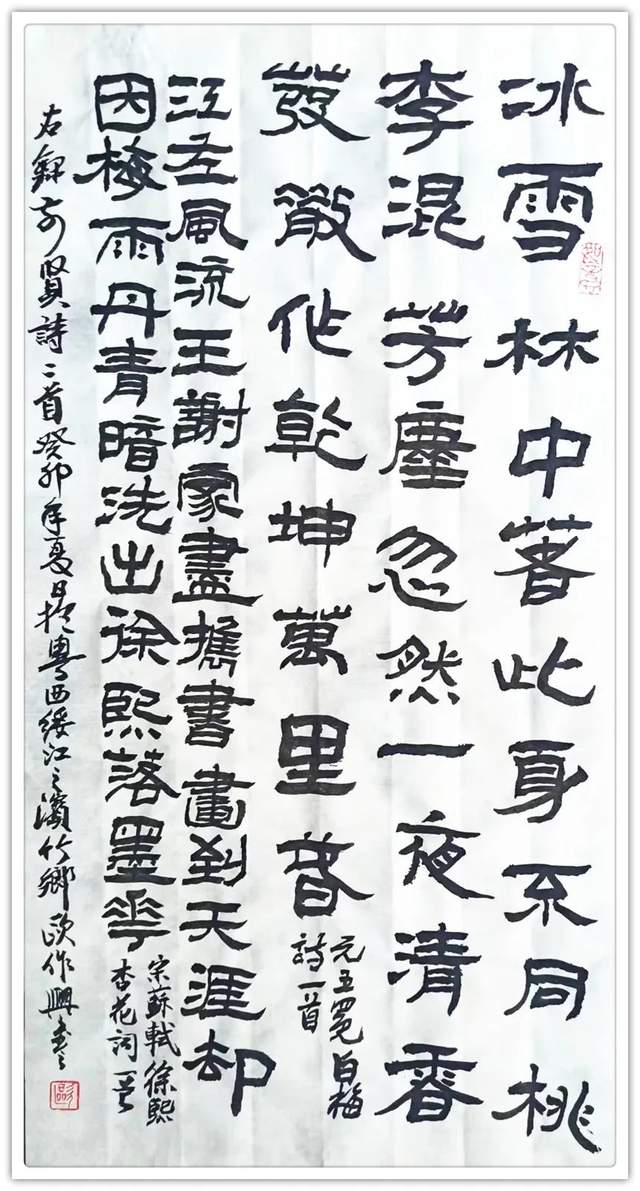 冰雪林中著此身不同桃
李混芳塵忽然一夜清香
發散作乾坤萬里春
元王冕白梅
詩一首
江左風流王謝家盡攜書畫到天涯却
因梅雨丹青暗洗出徐熙落墨花
宋蘇軾徐熙
杏花詞一首
右錄前賢詩二首癸卯年夏日於粵西綏江之濱竹鄉歐作興書